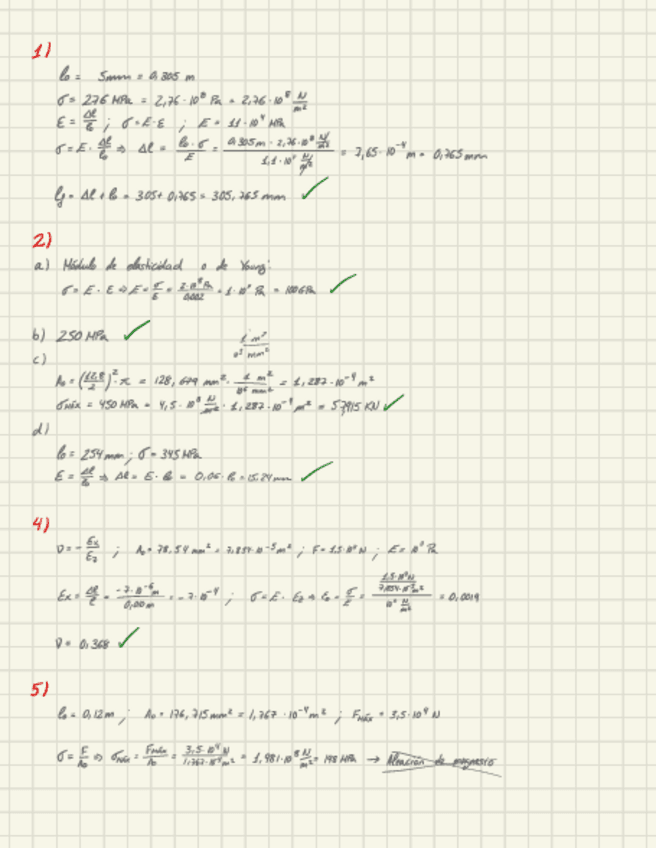 1)
l₀ = 5mm = 0,305 m
σ = 276 MPa = 2,76·10⁸ Pa = 2,76·10⁸ N/m²
ε = Δl/l₀ ; σ = E·ε ; E = 11·10⁴ MPa
σ = E·Δl/l₀ ⇒ Δl = l₀·σ/E = 0,305m·2,76·10⁸ N/m² / 1,1·10¹¹ N/m² = 7,65·10⁻⁴ m = 0,765 mm
lf = Δl + l₀ = 305 + 0,765 = 305,765 mm ✓
2)
a) Módulo de elasticidad o de Young:
σ = E·ε ⇒ E = σ/ε = 2·10⁸ Pa / 0,002 = 1·10¹¹ Pa = 100 GPa ✓
b) 250 MPa ✓
1 m² / 10⁶ mm²
c)
A₀ = (12,8/2)²·π = 128,679 mm²· 1 m² / 10⁶ mm² = 1,287·10⁻⁴ m²
σmáx = 450 MPa = 4,5·10⁸ N/m² · 1,287·10⁻⁴ m² = 57915 KN ✓
d)
l₀ = 254 mm ; σ = 345 MPa
ε = Δl/l₀ ⇒ Δl = ε·l₀ = 0,06·l₀ = 15,24 mm ✓
4)
ν = -εx/εz ; A₀ = 78,54 mm² = 7,854·10⁻⁵ m² ; F = 1,5·10⁴ N ; E = 10¹¹ Pa
εx = Δl/l = -7·10⁻⁶ m / 0,01 m = -7·10⁻⁴ ; σ = E·εz ⇒ εz = σ/E = 1,5·10⁴ N / 7,854·10⁻⁵ m² / 10¹¹ N/m² = 0,0019
ν = 0,368 ✓
5)
l₀ = 0,12 m ; A₀ = 176,715 mm² = 1,767·10⁻⁴ m² ; Fmáx = 3,5·10⁴ N
σ = F/A₀ ⇒ σmáx = Fmáx/A₀ = 3,5·10⁴ N / 1,767·10⁻⁴ m² = 1,981·10⁸ N/m² = 198 MPa → Aleación de magnesio